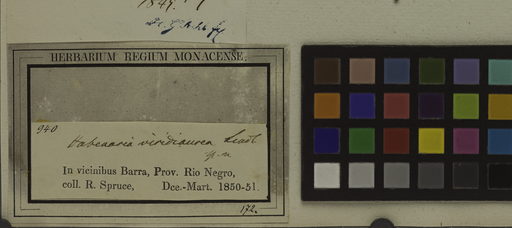 1849.
HERBARIUM REGIUM MONACENSE.
940
Habenaria viridiaurea Lindl
sp. n
In vicinibus Barra, Prov. Rio Negro,
coll. R. Spruce, Dec.-Mart. 1850-51.
172.